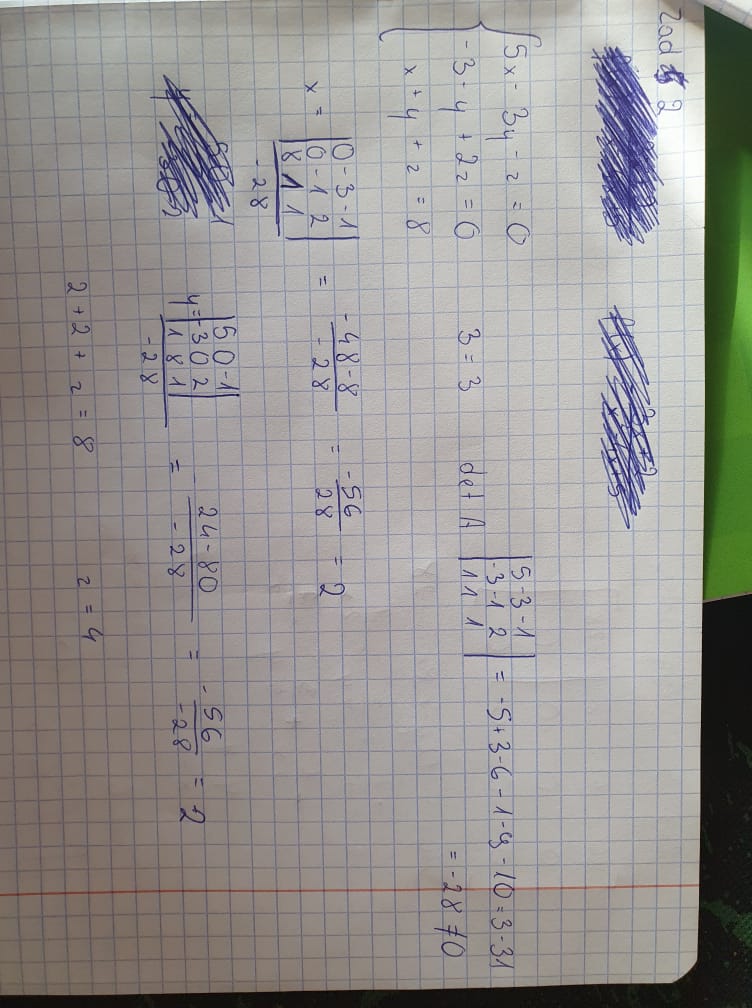 Zad 2
5x - 3y - z = 0
-3 - y + 2z = 0
x + y + z = 8
3 = 3
det A |5 -3 -1
-3 -1 2
1 1 1| = -5+3-6-1-9-10=3-31
= -28 ≠0
x = |0 -3 -1
0 -1 2
8 1 1|
-28
= -48-8
-28
= -56
28
= 2
y= |5 0 -1
-3 0 2
1 8 1|
-28
= 24-80
-28
= -56
-28
= 2
2+2+z=8 z=4